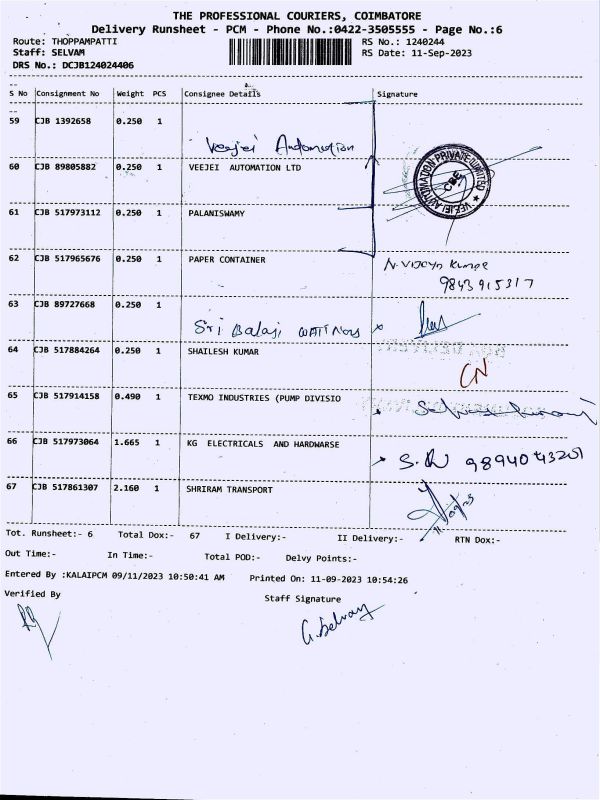 THE PROFESSIONAL COURIERS, COIMBATORE
Delivery Runsheet - PCM - Phone No.:0422-3505555 - Page No.:6
Route: THOPPAMPATTI RS No.: 1240244
Staff: SELVAM RS Date: 11-Sep-2023
DRS No.: DCJB124024406
S No Consignment No Weight PCS Consignee Details Signature
59 CJB 1392658 0.250 1
Veejei Automation
60 CJB 89805882 0.250 1 VEEJEI AUTOMATION LTD
VEEJEI AUTOMATION PRIVATE LIMITED
CBE
61 CJB 517973112 0.250 1 PALANISWAMY
62 CJB 517965676 0.250 1 PAPER CONTAINER N. Vijaya Kumar
9843915317
63 CJB 89727668 0.250 1
Sri Balaji
64 CJB 517884264 0.250 1 SHAILESH KUMAR
CN
65 CJB 517914158 0.490 1 TEXMO INDUSTRIES (PUMP DIVISIO
66 CJB 517973064 1.665 1 KG ELECTRICALS AND HARDWARSE
67 CJB 517861307 2.160 1 SHRIRAM TRANSPORT
Tot. Runsheet:- 6 Total Dox:- 67 I Delivery:- II Delivery:- RTN Dox:-
Out Time:- In Time:- Total POD:- Delvy Points:-
Entered By :KALAIPCM 09/11/2023 10:50:41 AM Printed On: 11-09-2023 10:54:26
Verified By Staff Signature
G. Selvam